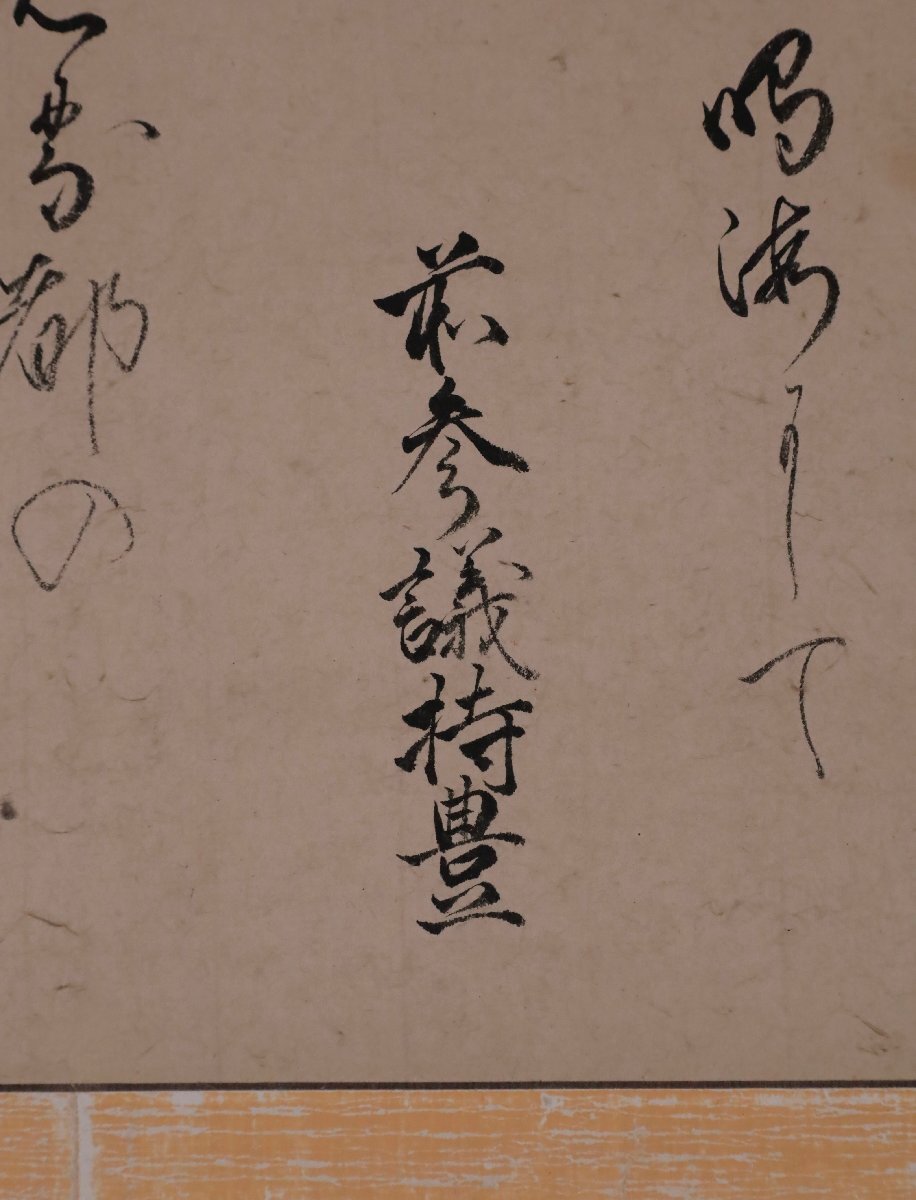 鳴海にて
前参議持豊
都の